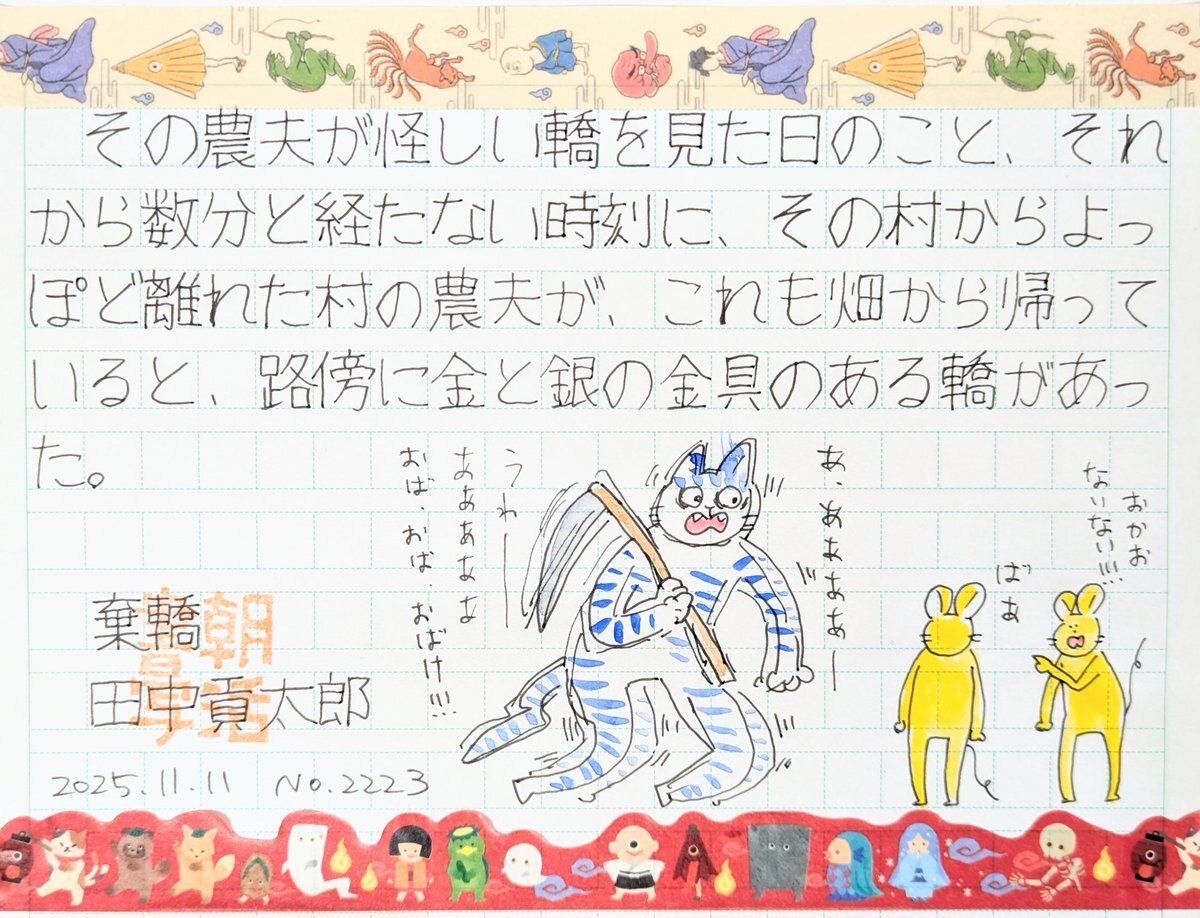 その農夫が怪しい轎を見た日のこと、それ
から数分と経たない時刻に、その村からよっ
ぽど離れた村の農夫が、これも畑から帰って
いると、路傍に金と銀の金具のある轎があっ
た。
おかお
ないない!!!
ばぁ
あ、ああああー
うわー
ああああああ
おば、おば、おばけ!!!
棄轎
田中貢太郎
2025.11.11 No.2223